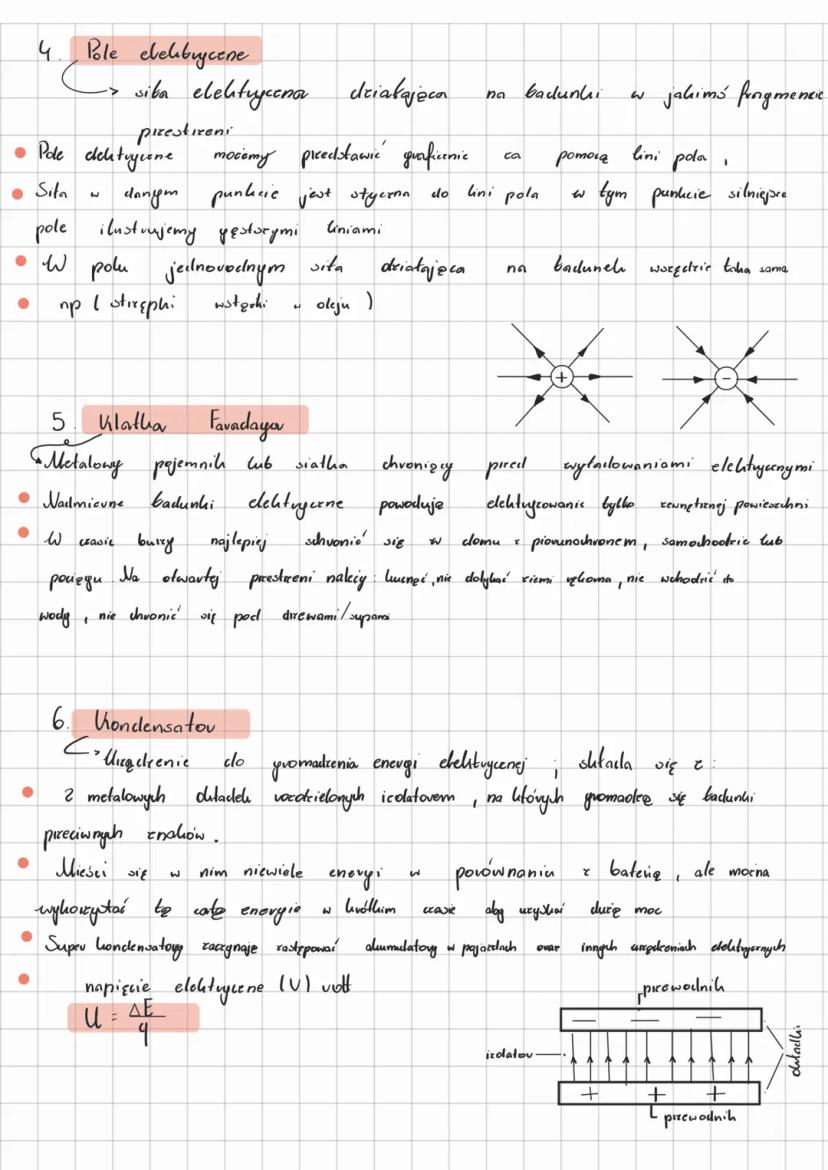 4. Pole elektryczne
→ siła elektryczna działająca na ładunki w jakimś fragmencie
przestrzeni
• Pole elektryczne możemy przedstawić graficznie za pomocą lini pola,
• Siła w danym punkcie jest styczna do lini pola w tym punkcie silniejsze
pole ilustrujemy gęstszymi liniami
• W polu jednorodnym siła działająca na ładunek wszędzie taka sama
• np ( strzępki wstążki w oleju )
+
-
5. Klatka Faradaya
Metalowy pojemnik lub siatka chroniący przed wyładowaniami elektrycznymi
• Nadmierne ładunki elektryczne powoduję elektryzowanie tylko zewnętrznej powierzchni
• W czasie burzy najlepiej schronić się w domu z piorunochronem, samochodzie lub
pociągu. Na otwartej przestrzeni należy: kucnąć, nie dotykać ziemi rękoma, nie wchodzić do
wody, nie chronić się pod drzewami/słupami
6. Kondensator
→ Urządzenie do gromadzenia energi elektrycznej ; składa się z:
• 2 metalowych okładek rozdzielonych izolatorem, na których gromadzą się ładunki
przeciwnych znaków.
• Mieści się w nim niewiele energi w porównaniu z baterią, ale można
wykorzystać tę całą energię w krótkim czasie aby uzyskać dużą moc
• Super kondensatory zaczynają zastępować akumulatory w pojazdach oraz innych urządzeniach elektrycznych
• napięcie elektryczne (U) volt
U = ΔE/q
przewodnik
— — —
izolator
okładki
+ + +
przewodnik